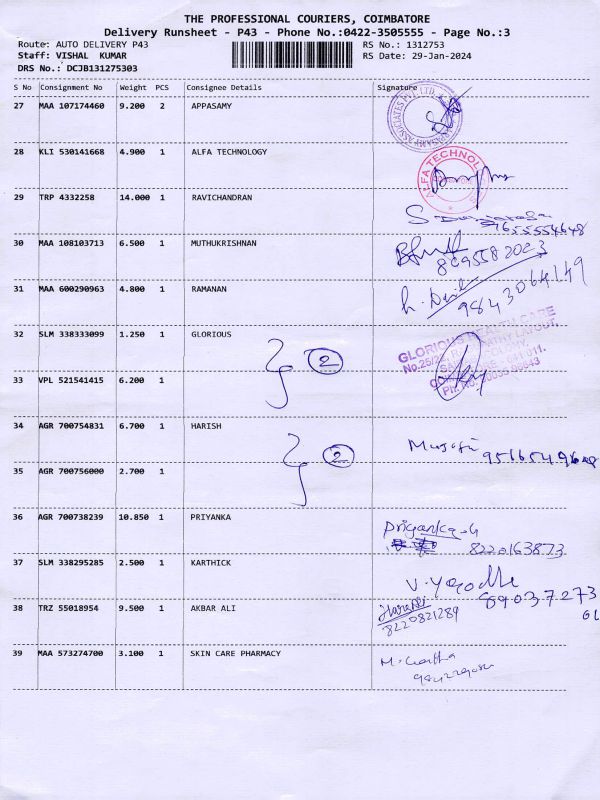 THE PROFESSIONAL COURIERS, COIMBATORE
Delivery Runsheet - P43 - Phone No.:0422-3505555 - Page No.:3
Route: AUTO DELIVERY P43 RS No.: 1312753
Staff: VISHAL KUMAR RS Date: 29-Jan-2024
DRS No.: DCJB131275303
S No Consignment No Weight PCS Consignee Details Signature
27 MAA 107174460 9.200 2 APPASAMY
28 KLI 530141668 4.900 1 ALFA TECHNOLOGY
ALFA TECHNOL
29 TRP 4332258 14.000 1 RAVICHANDRAN
9655554648
30 MAA 108103713 6.500 1 MUTHUKRISHNAN
8695582023
31 MAA 600290963 4.800 1 RAMANAN
9843064149
32 SLM 338333099 1.250 1 GLORIOUS
2
GLORIOUS HEALTH CARE
33 VPL 521541415 6.200 1
34 AGR 700754831 6.700 1 HARISH
2
35 AGR 700756000 2.700 1
36 AGR 700738239 10.850 1 PRIYANKA
Priyanka.G
8220163873
37 SLM 338295285 2.500 1 KARTHICK
V. Yasodha
89037273
38 TRZ 55018954 9.500 1 AKBAR ALI
8220821289
39 MAA 573274700 3.100 1 SKIN CARE PHARMACY